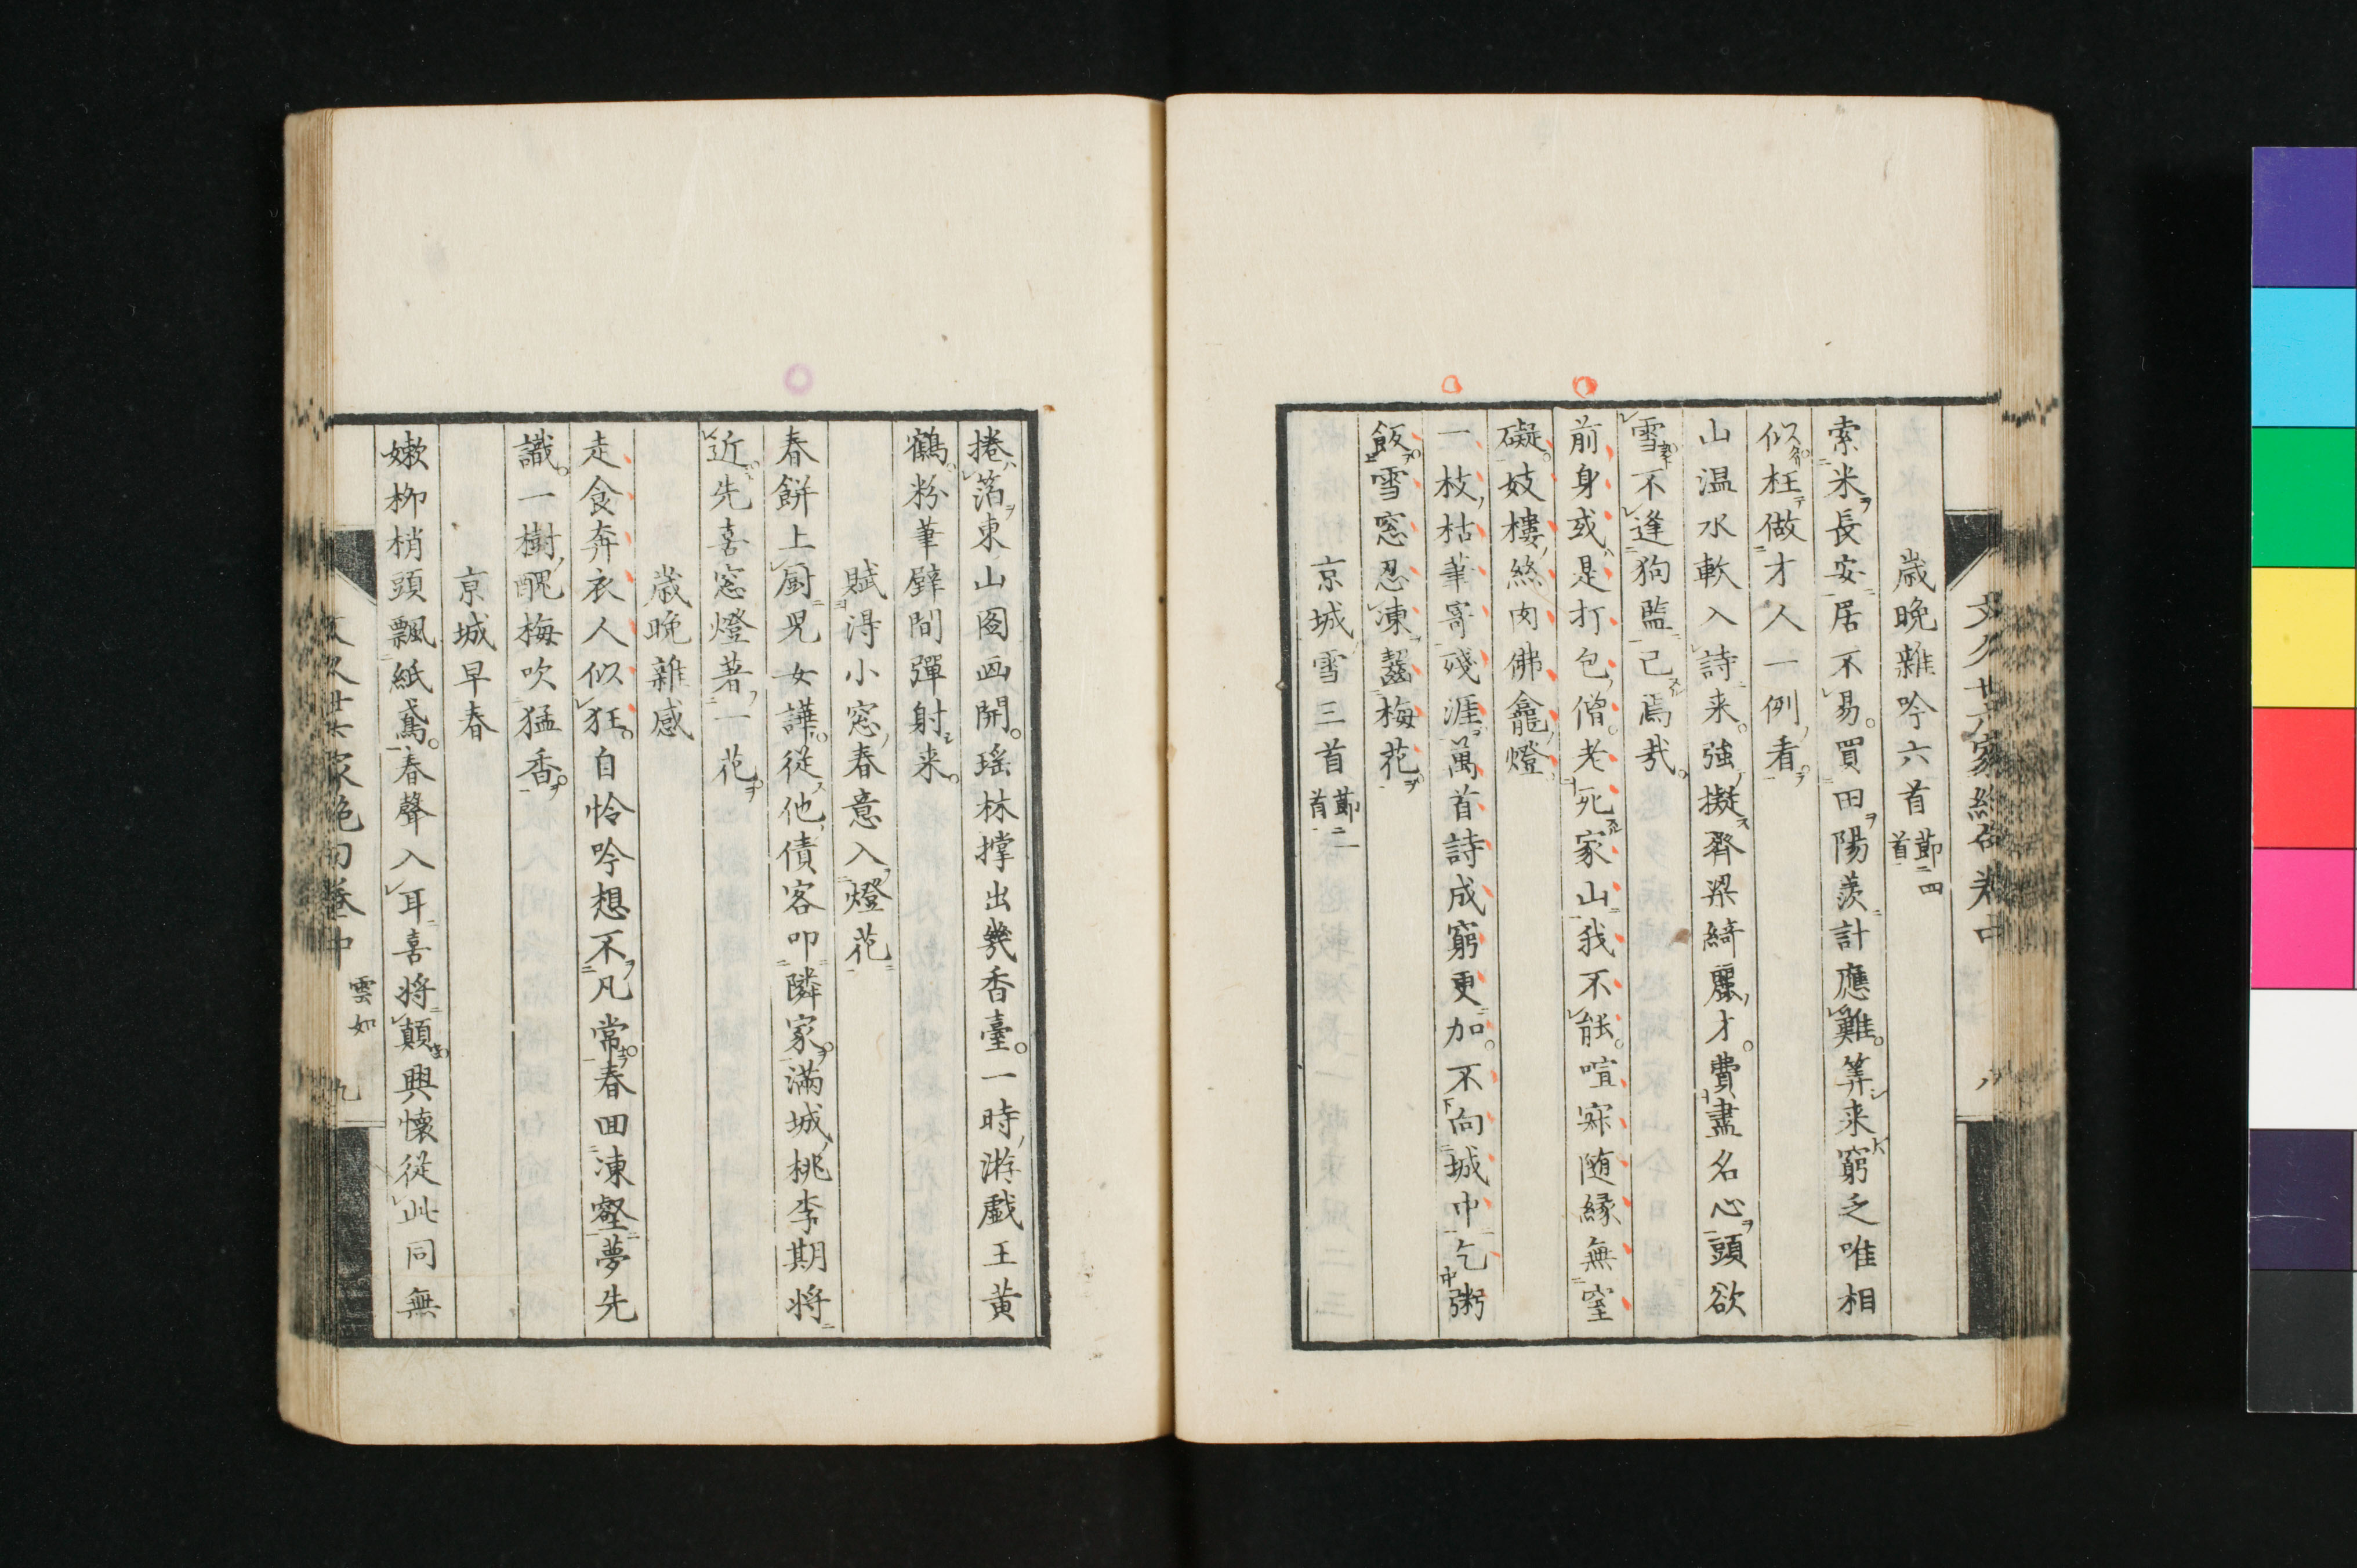 歳晩雜吟六首 節四首
索米長安居不易。買田陽羨計應難。算来窮乏唯相
似。枉做才人一例看
山温水軟入詩来。強擬齊梁綺麗才。費盡名心頭欲
雪。不逢狗監已焉哉。
前身或是打包僧。老死家山我不能。喧寂随縁無窒
礙。妓樓絲肉佛龕燈
一枝枯筆寄殘涯。萬首詩成窮更加。不向城中乞粥
飯。雪窓忍凍齧梅花。
京城雪三首 節二首
捲箔東山図画開。瑶林撑出幾香臺。一時游戯王黄
鶴。粉筆壁間彈射来。
賦得小窓春意入燈花
春餅上厨児女譁。從他債客叩隣家。滿城桃李期将
近。先喜窓燈著一花。
歳晩雜感
走食奔衣人似狂。自怜吟想不凡常。春回凍壑夢先
識。一樹醜梅吹猛香。
京城早春
嫩柳梢頭飄紙鳶。春聲入耳喜将顛。興懷從此同無
文久廿六家絶句卷中 雲如 九